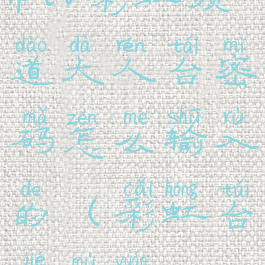 dào dà rén tái mì
道大人台密
mǎ zěn me shū rù
码怎么输入
de cǎi hóng tái
的(彩虹台